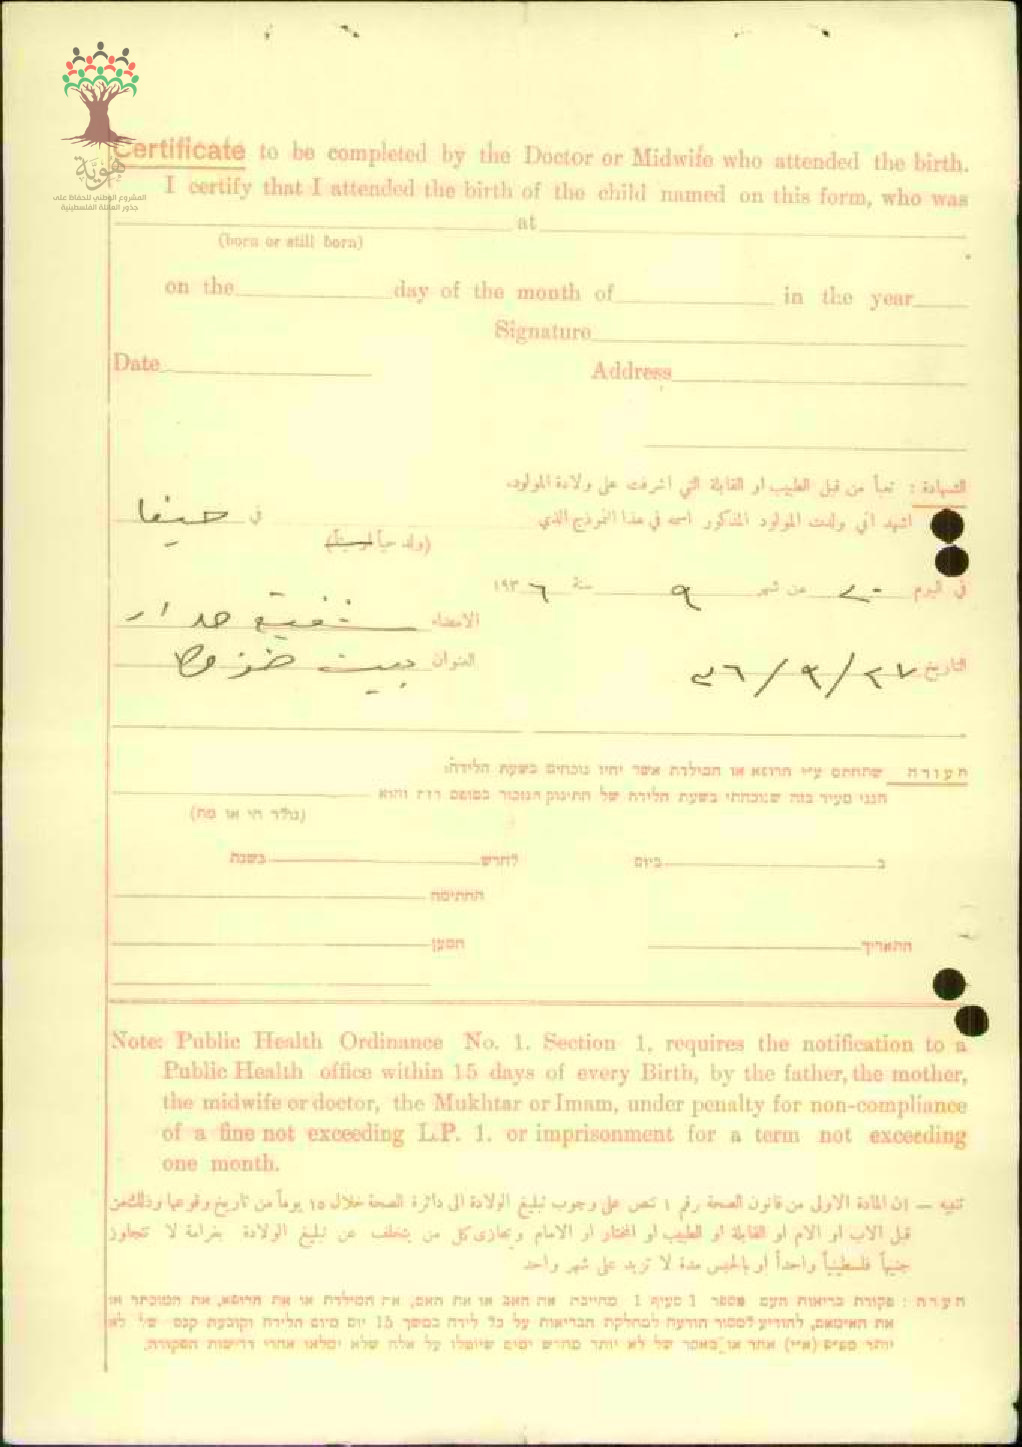 هُوِيَّة
المشروع الوطني للحفاظ على
جذور العائلة الفلسطينية
Certificate to be completed by the Doctor or Midwife who attended the birth.
I certify that I attended the birth of the child named on this form, who was
at
(born or still born)
on the day of the month of in the year
Signature
Date Address
الشهادة : تعبأ من قبل الطبيب او القابلة التي اشرفت على ولادة المولود.
اشهد اني ولدت المولود المذكور اسمه في هذا النموذج الذي في حيفا
(ولد حياً او ميتاً)
في اليوم ٢٠ من شهر ٩ سنة ١٩٣٦
الامضاء شفيق حداد
العنوان بيت
التاريخ ٢٧/٩/٣٦
תעודה שתחתם ע״י הרופא או המילדת אשר יהיו נוכחים בשעת הלידה:
הנני מעיד בזה שנוכחתי בשעת הלידה של התינוק הנזכור בטופס הזה והוא
(נולד חי או מת)
ב ביום לחדש בשנת
החתימה
התאריך המען
Note: Public Health Ordinance No. 1. Section 1. requires the notification to a
Public Health office within 15 days of every Birth, by the father, the mother,
the midwife or doctor, the Mukhtar or Imam, under penalty for non-compliance
of a fine not exceeding L.P. 1. or imprisonment for a term not exceeding
one month.
تنبيه — ان المادة الاولى من قانون الصحة رقم ١ تنص على وجوب تبليغ الولادة الى دائرة الصحة خلال ١٥ يوماً من تاريخ وقوعها وذلك من
قبل الاب او الام او القابلة او الطبيب او المختار او الامام ويجازى كل من يتخلف عن تبليغ الولادة بغرامة لا تتجاوز
جنيهاً فلسطينياً واحداً او بالحبس مدة لا تزيد على شهر واحد
הערה : פקודת בריאות העם מספר 1 סעיף 1 מחייבת את האב או את האם, את המילדת או את הרופא, את המוכתר או
את האימאם, להודיע למסור הודעה למחלקת הבריאות על כל לידה במשך 15 יום מיום הלידה וקובעת קנס של לא
יותר מפ״ם (א״י) אחד או מאסר של לא יותר מחדש ימים שיוטלו על אלה שלא ימלאו אחרי דרישות הפקודה.